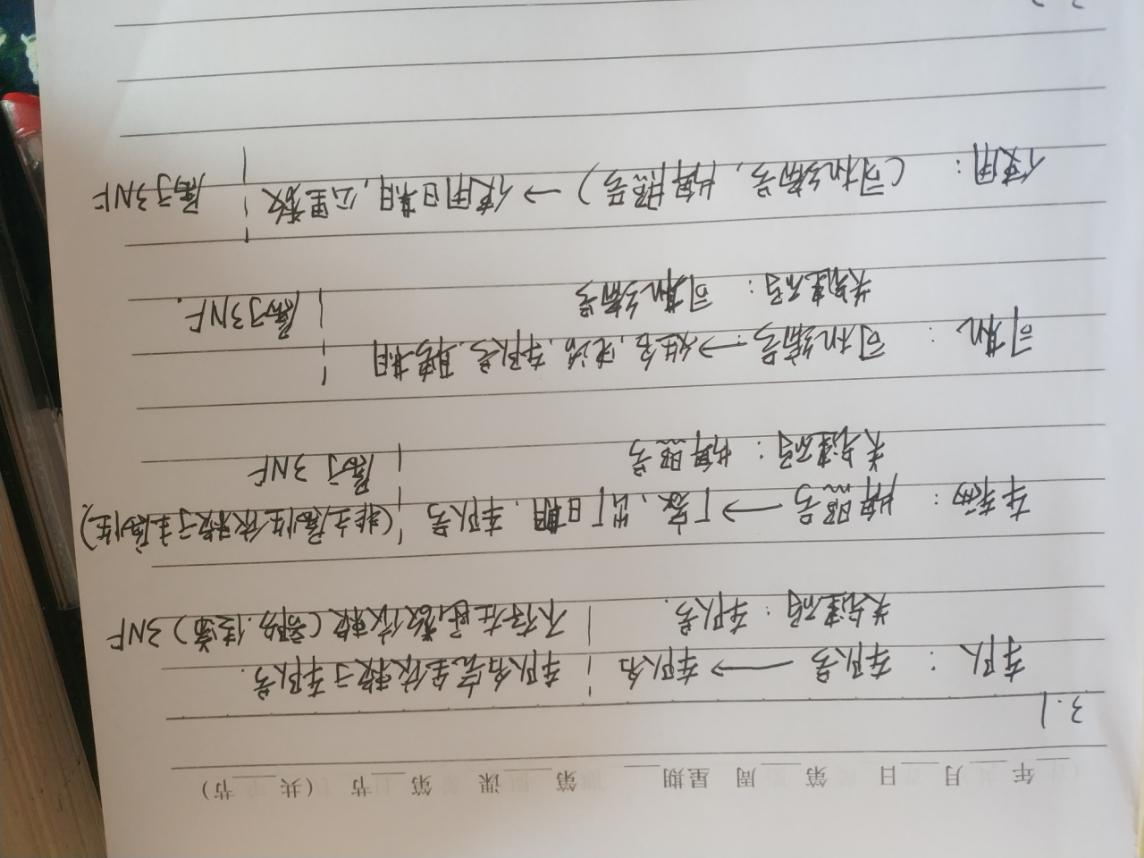 年 月 日 第 周 星期 第 课 第 节 (共 节)
3.1
车队: 车队号 → 车队名 车队名完全依赖于车队号.
关键码: 车队号. 不存在函数依赖(部分.传递) 3NF
车辆: 牌照号 → 厂家、出厂日期、车队号 (非主属性依赖于主属性)
关键码: 牌照号 属于3NF
司机: 司机编号 → 姓名、电话、车队号、聘期
关键码: 司机编号 属于3NF.
使用: (司机编号, 牌照号) → 使用日期, 公里数 属于3NF